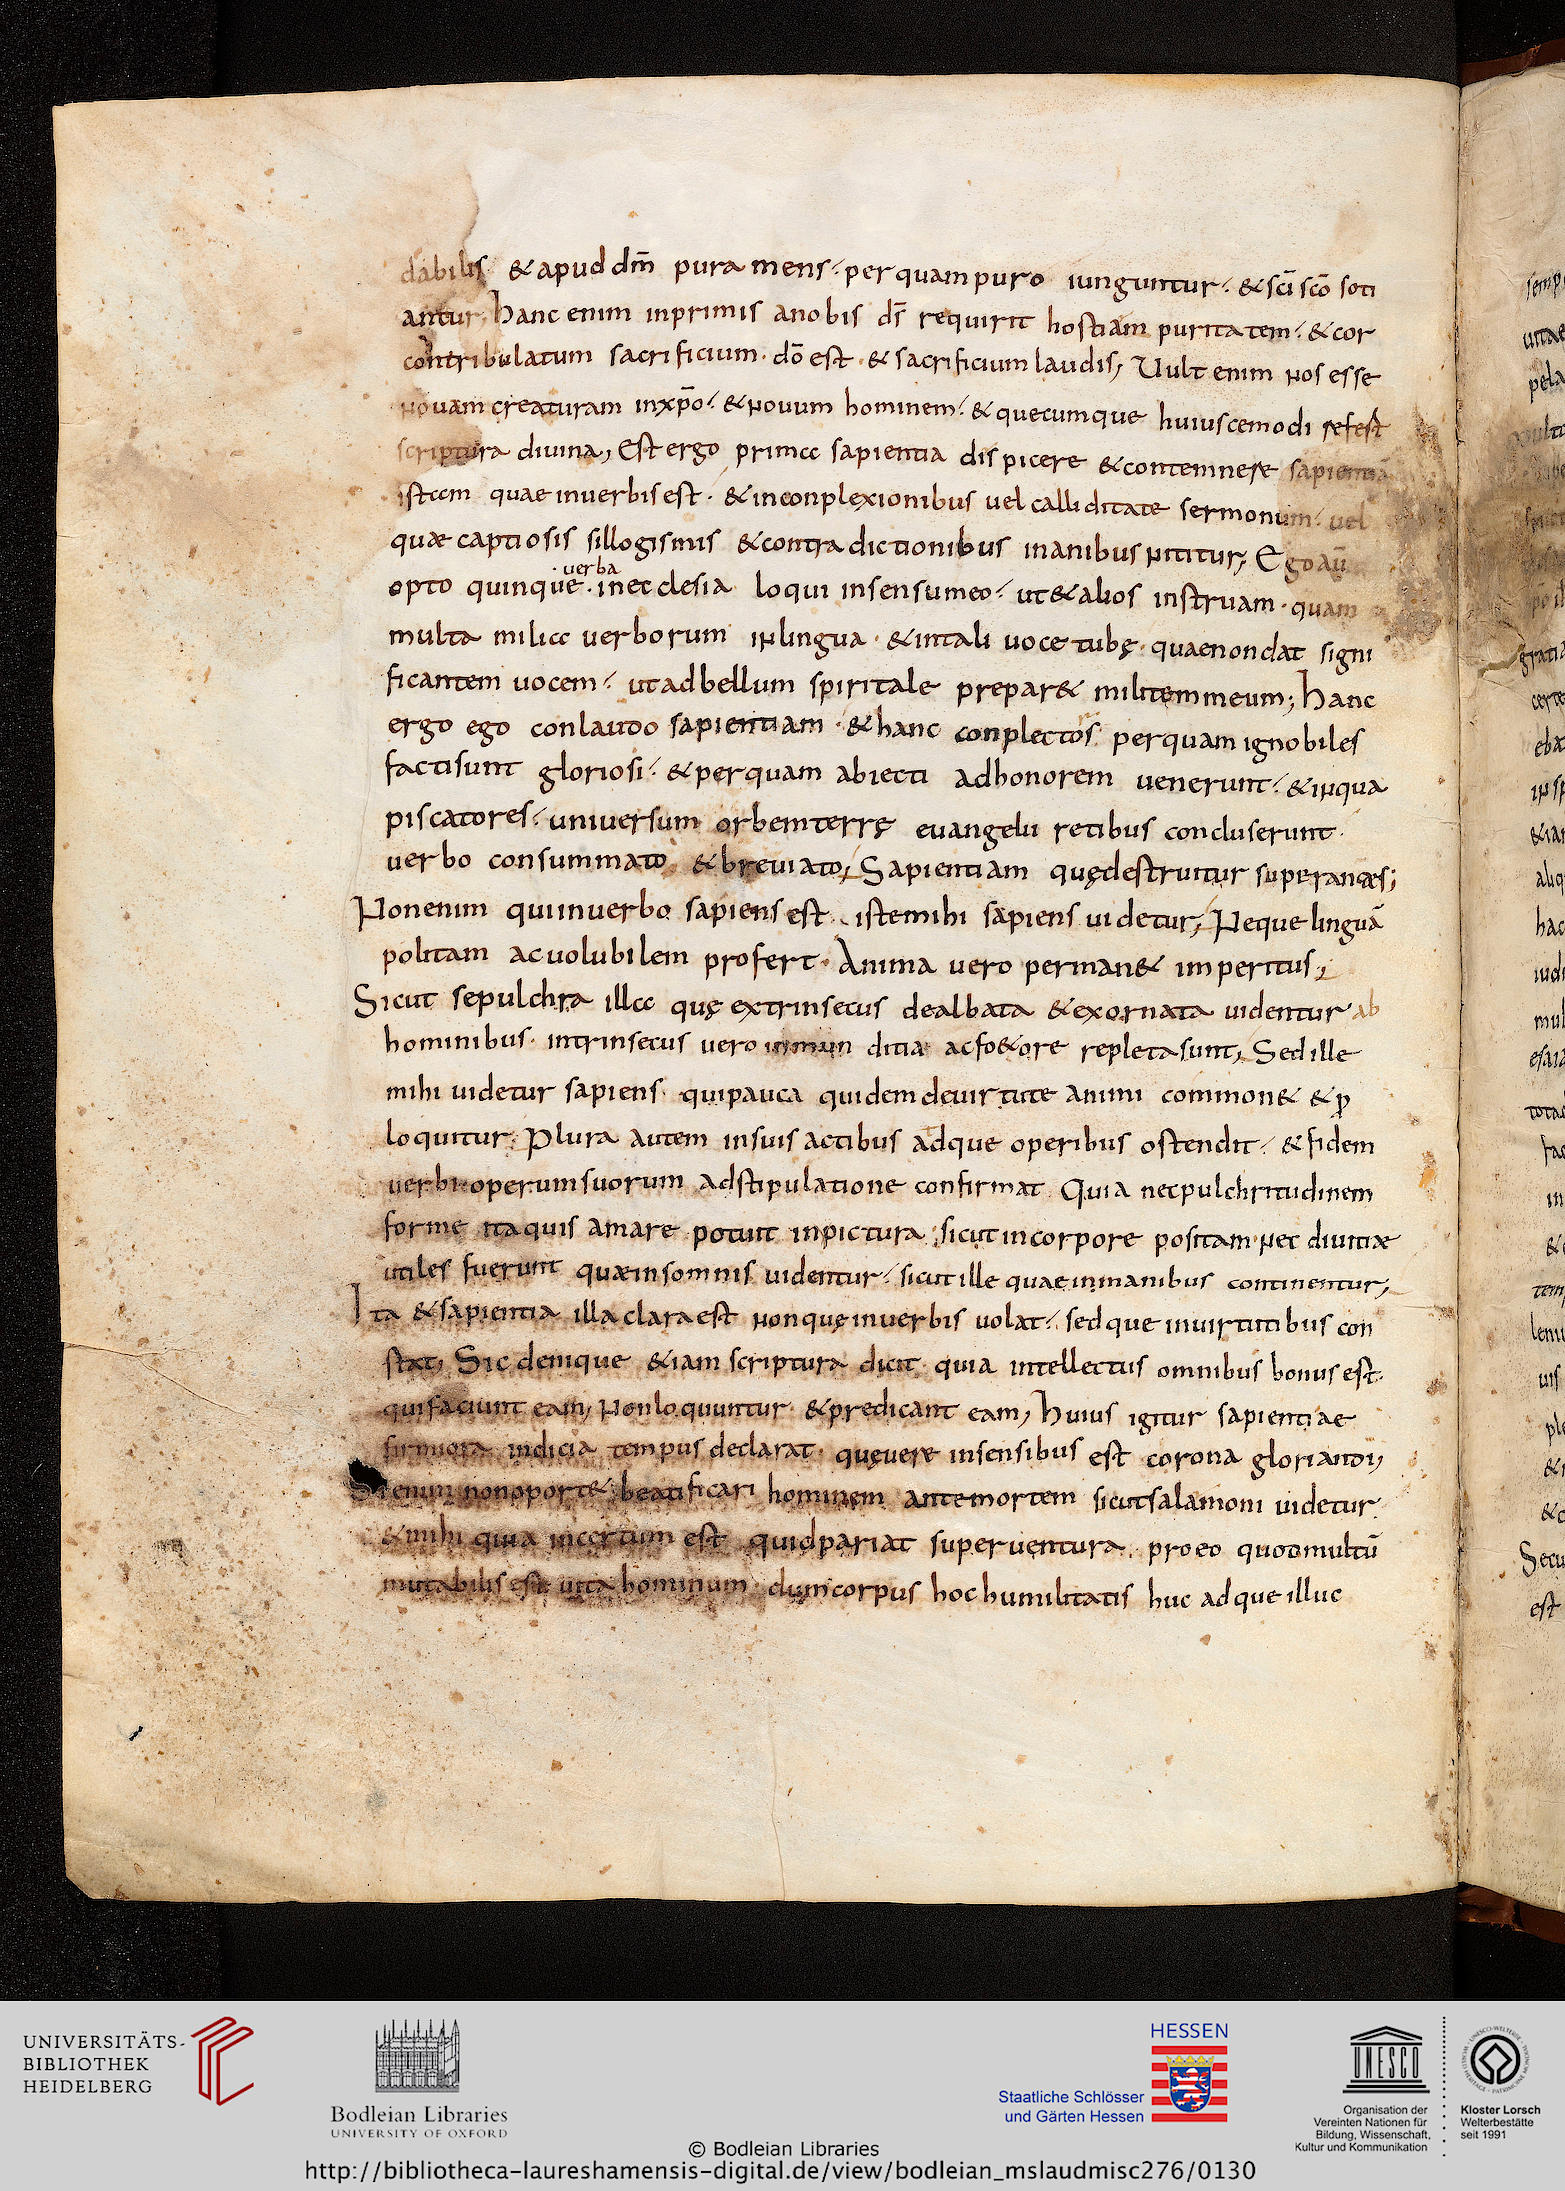 dabilis & apud dm̄ pura mens. per quam puro iunguntur. & sc̄i sc̄o soti
antur, hanc enim inprimis anobis dr̄ requirit hostiam puritatem. & cor
contribulatum sacrificium. dō est. & sacrificium laudis, Uult enim nos esse
nouam creaturam inxp̄o. & nouum hominem. & quecumque huiuscemodi refest
scriptura diuina, Est ergo prima sapientia dispicere & contemnere sapientiā
istam quae inuerbis est. & inconplexionibus uel calliditate sermonum. uel
quæ captiosis sillogismis & contradictionibus inanibus nititur, Ego aū
opto quinque verba inecclesia loqui insensu meo. ut & alios instruam. quam
multa milia uerborum inlingua. & intali uoce tubę. quae non dat signi
ficantem uocem. ut ad bellum spiritale prepar& militem meum; hanc
ergo ego conlaudo sapientiam. & hanc conplector per quam ignobiles
facti sunt gloriosi. & per quam abiecti ad honorem uenerunt. & in qua
piscatores. uniuersum orbem terrę euangelii retibus concluserunt.
uerbo consummato & breuiato, Sapientiam quę destruitur superantes;
Non enim qui inuerbo sapiens est iste mihi sapiens uidetur, Neque linguā
politam ac uolubilem profert. Anima uero perman& imperitus,
Sicut sepulchra illa quę extrinsecus dealbata & exornata uidentur ab
hominibus. intrinsecus uero inmunditia ac fo&ore repleta sunt, Sed ille
mihi uidetur sapiens. qui pauca quidem deuirtute animi common& & p
loquitur. Plura autem insuis actibus adque operibus ostendit. & fidem
uerbi operum suorum adstipulatione confirmat Quia nec pulchritudinem
forme ita quis amare potuit inpictura sicut incorpore positam nec diuitiæ
utiles fuerunt quæ insomnis uidentur. sicut ille quae inmanibus continentur,
Ita & sapientia illa clara est non quę inuerbis uolat. sed que inuirtutibus con
stat, Sic denique &iam scriptura dicit. quia intellectus omnibus bonus est.
qui faciunt eam, Non loquuntur & predicant eam, huius igitur sapientiae
firmiora indicia tempus declarat. quę uere insensibus est corona gloriandi,
Si enim non oport& beatificari hominem ante mortem sicut salamoni uidetur.
& mihi quia incertum est quid pariat superuentura. pro eo quod multū
mutabilis est uita hominum. dum corpus hoc humilitatis huc adque illuc
UNIVERSITÄTS-
BIBLIOTHEK
HEIDELBERG
Bodleian Libraries
UNIVERSITY OF OXFORD
HESSEN
Staatliche Schlösser
und Gärten Hessen
UNESCO
Organisation der
Vereinten Nationen für
Bildung, Wissenschaft,
Kultur und Kommunikation
Kloster Lorsch
Welterbestätte
seit 1991
© Bodleian Libraries
http://bibliotheca-laureshamensis-digital.de/view/bodleian_mslaudmisc276/0130